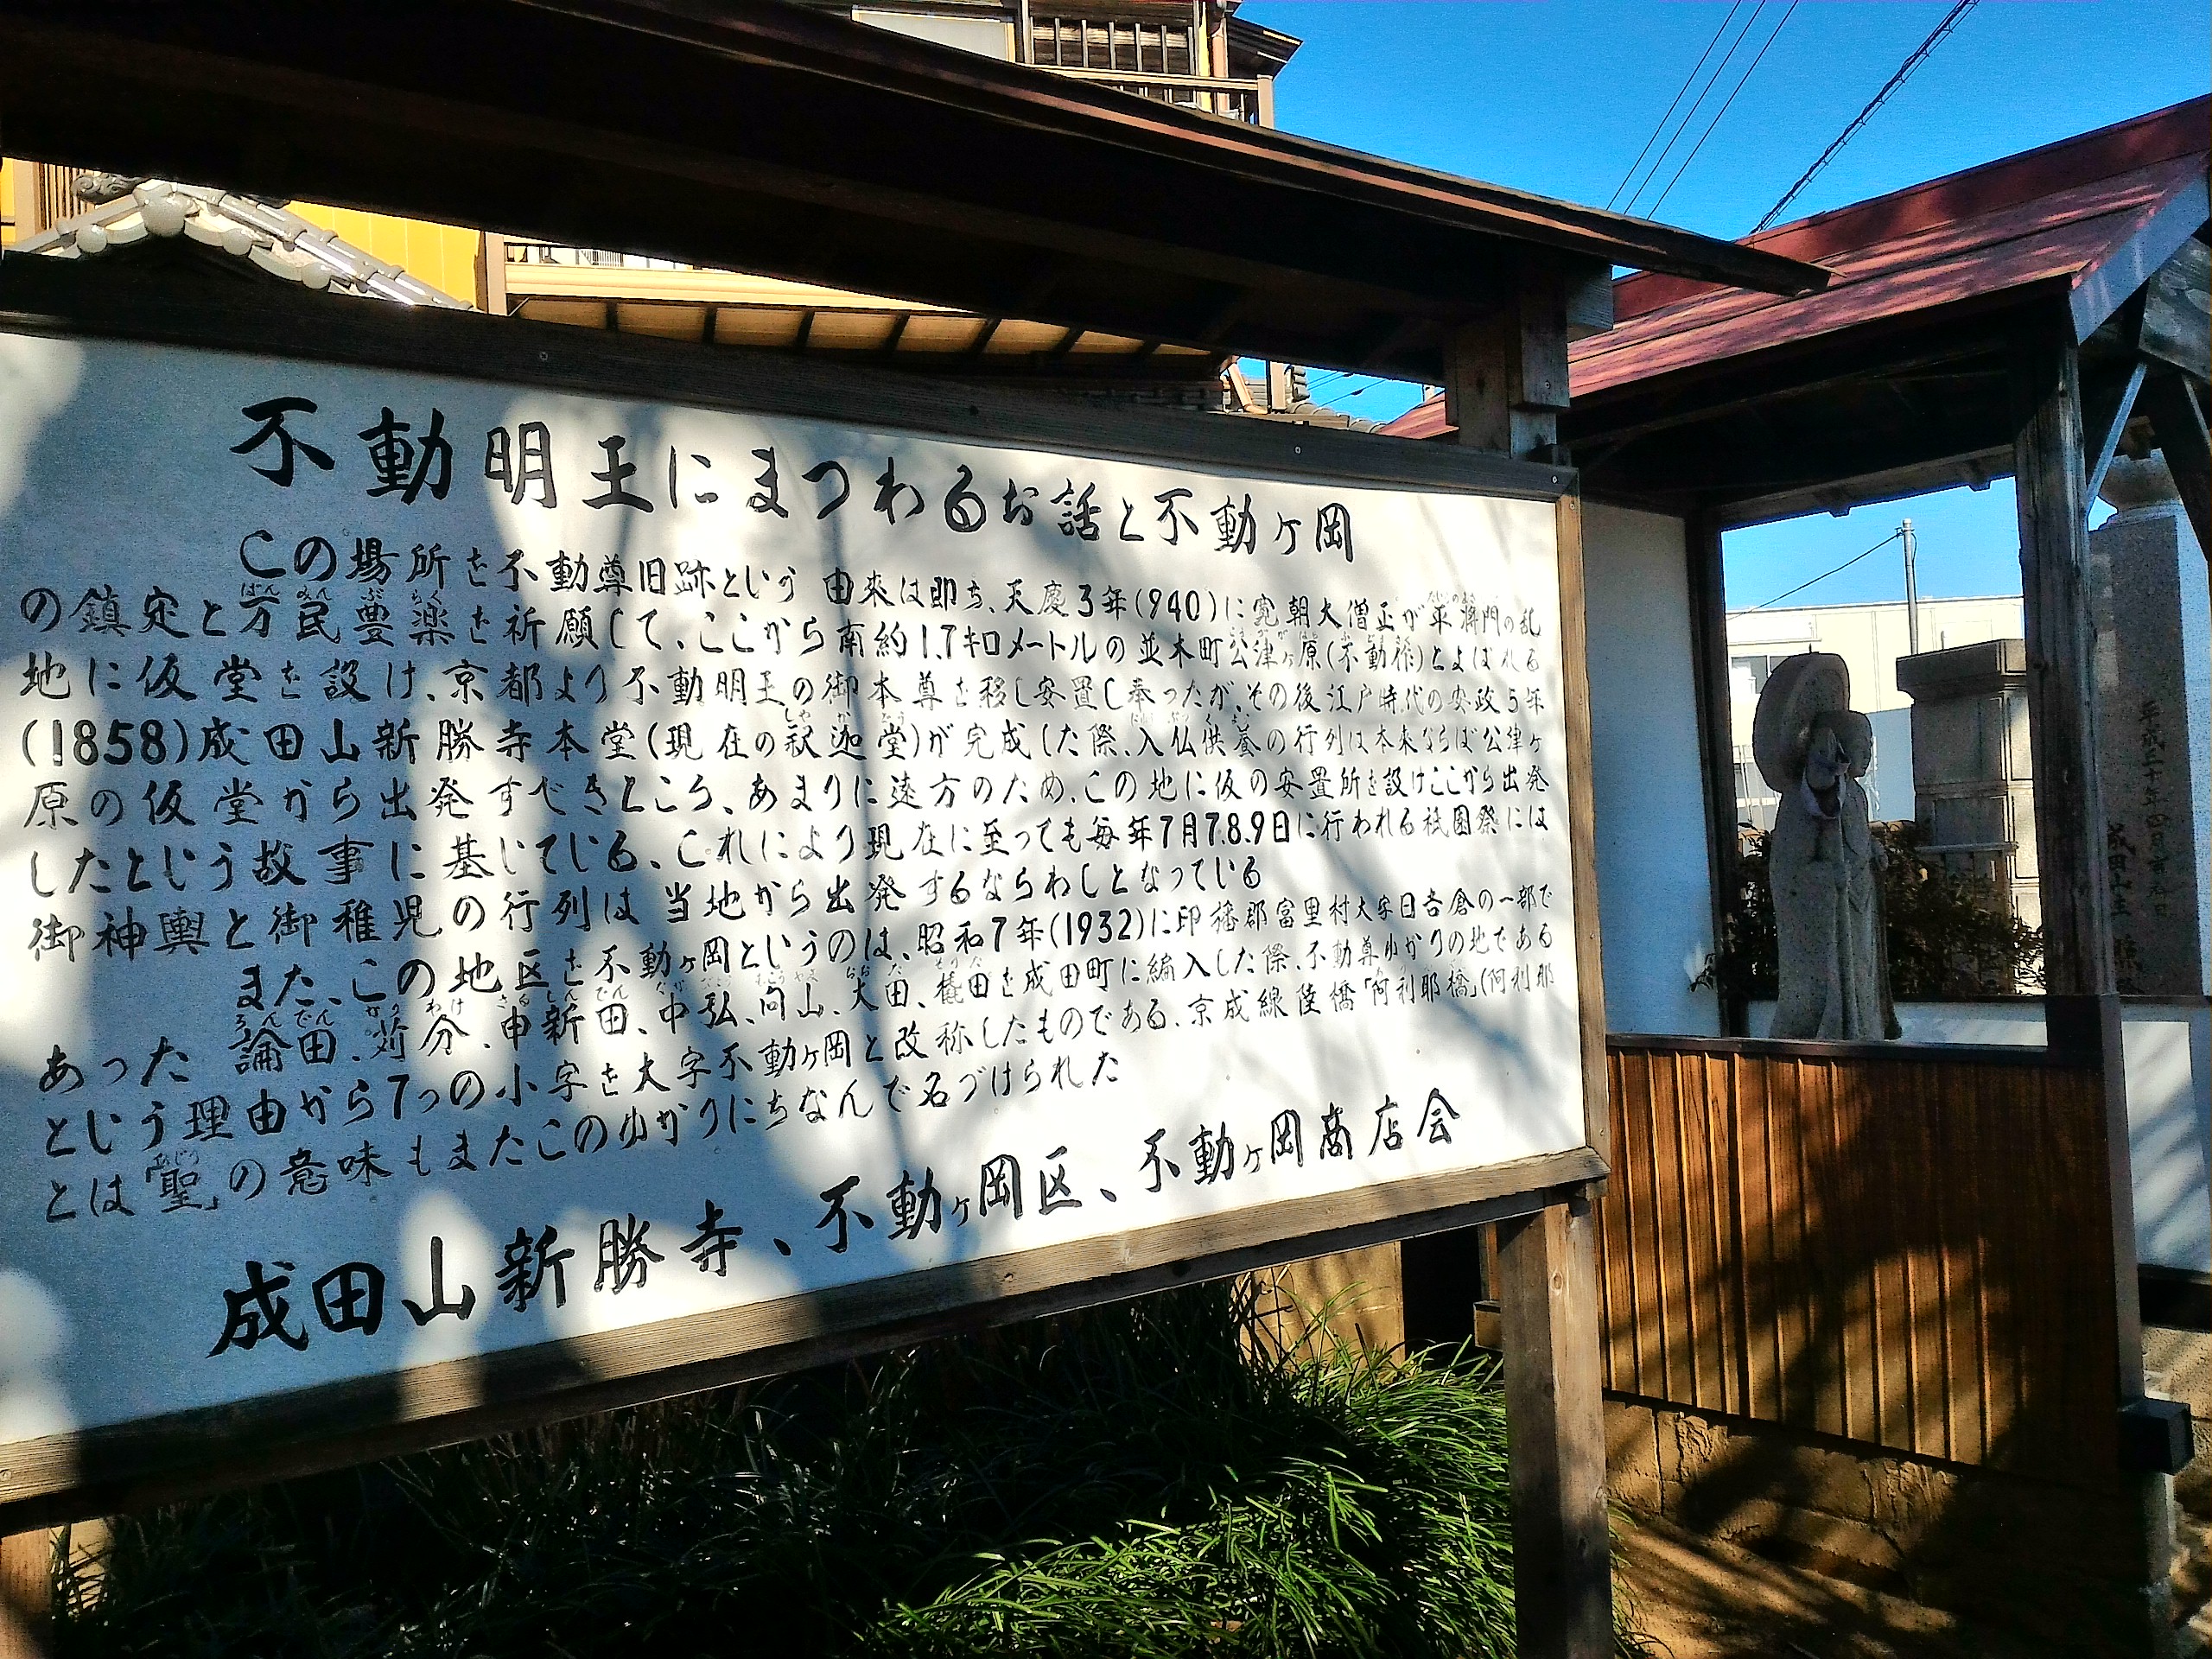 不動明王にまつわるお話と不動ヶ岡
この場所を不動尊旧跡という 由来は即ち、天慶3年(940)に寛朝大僧正が平将門の乱
の鎮定と万民豊楽を祈願して、ここから南約1.7キロメートルの並木町公津ヶ原(不動作)とよばれる
地に仮堂を設け、京都より不動明王の御本尊を移し安置し奉ったが、その後江戸時代の安政5年
(1858)成田山新勝寺本堂(現在の釈迦堂)が完成した際、入仏供養の行列は本来ならば公津ヶ
原の仮堂から出発すべきところ、あまりに遠方のため、この地に仮の安置所を設けここから出発
したという故事に基じている、これにより現在に至っても毎年7月7.8.9日に行われる祇園祭には
御神輿と御稚児の行列は当地から出発するならわしとなっている
また、この地区を不動ヶ岡というのは、昭和7年(1932)に印旛郡富里村大字日吉倉の一部で
あった 論田、苅分、申新田、中弘、向山、大田、橇田を成田町に編入した際、不動尊ゆかりの地である
という理由から7つの小字を大字不動ヶ岡と改称したものである、京成線陸橋「阿利耶橋」(阿利耶
とは「聖」の意味もまたこのゆかりにちなんで名づけられた
成田山新勝寺、不動ヶ岡区、不動ヶ岡商店会
平成三十年四月吉日
成田山主